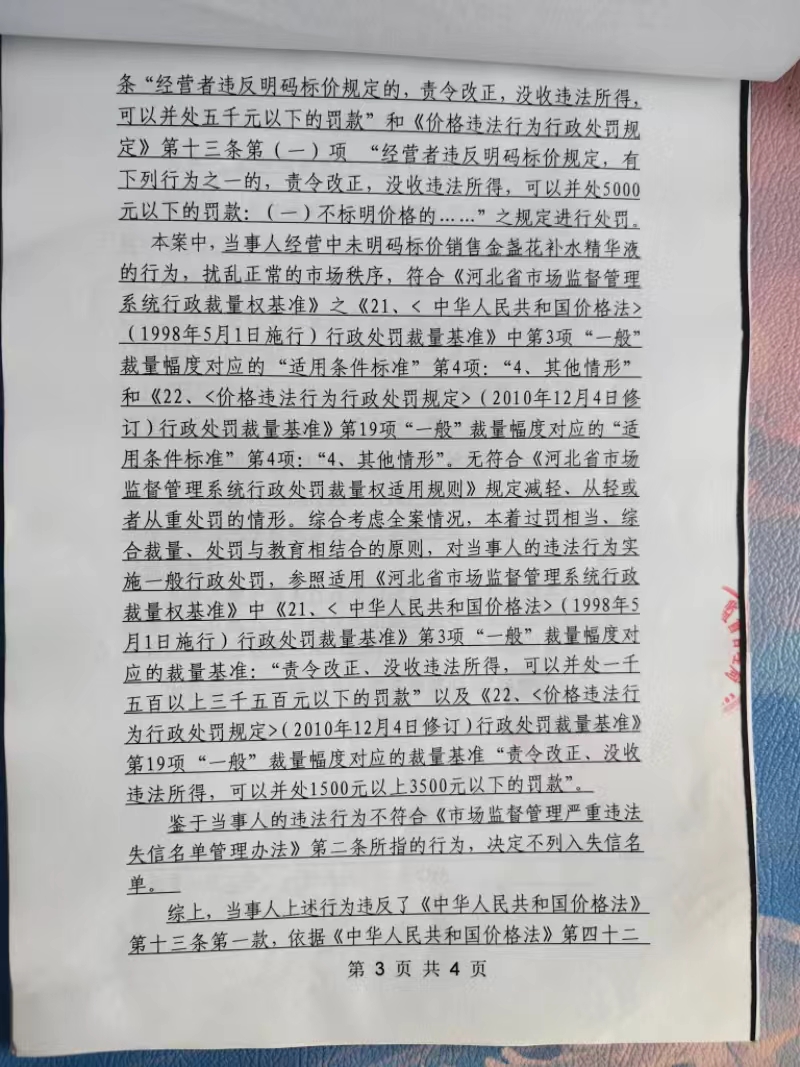 条“经营者违反明码标价规定的，责令改正，没收违法所得，
可以并处五千元以下的罚款”和《价格违法行为行政处罚规
定》第十三条第（一）项 “经营者违反明码标价规定，有
下列行为之一的，责令改正，没收违法所得，可以并处5000
元以下的罚款：（一）不标明价格的……”之规定进行处罚。
本案中，当事人经营中未明码标价销售金盏花补水精华液
的行为，扰乱正常的市场秩序，符合《河北省市场监督管理
系统行政裁量权基准》之《21、< 中华人民共和国价格法>
（1998年5月1日施行）行政处罚裁量基准》中第3项“一般”
裁量幅度对应的“适用条件标准”第4项：“4、其他情形”
和《22、<价格违法行为行政处罚规定>（2010年12月4日修
订）行政处罚裁量基准》第19项“一般”裁量幅度对应的“适
用条件标准”第4项：“4、其他情形”。无符合《河北省市场
监督管理系统行政处罚裁量权适用规则》规定减轻、从轻或
者从重处罚的情形。综合考虑全案情况，本着过罚相当、综
合裁量、处罚与教育相结合的原则，对当事人的违法行为实
施一般行政处罚，参照适用《河北省市场监督管理系统行政
裁量权基准》中《21、< 中华人民共和国价格法>（1998年5
月1日施行）行政处罚裁量基准》第3项“一般”裁量幅度对
应的裁量基准：“责令改正、没收违法所得，可以并处一千
五百以上三千五百元以下的罚款”以及《22、<价格违法行
为行政处罚规定>（2010年12月4日修订）行政处罚裁量基准》
第19项“一般”裁量幅度对应的裁量基准“责令改正、没收
违法所得，可以并处1500元以上3500元以下的罚款”。
鉴于当事人的违法行为不符合《市场监督管理严重违法
失信名单管理办法》第二条所指的行为，决定不列入失信名
单。
综上，当事人上述行为违反了《中华人民共和国价格法》
第十三条第一款，依据《中华人民共和国价格法》第四十二
第 3 页 共 4 页